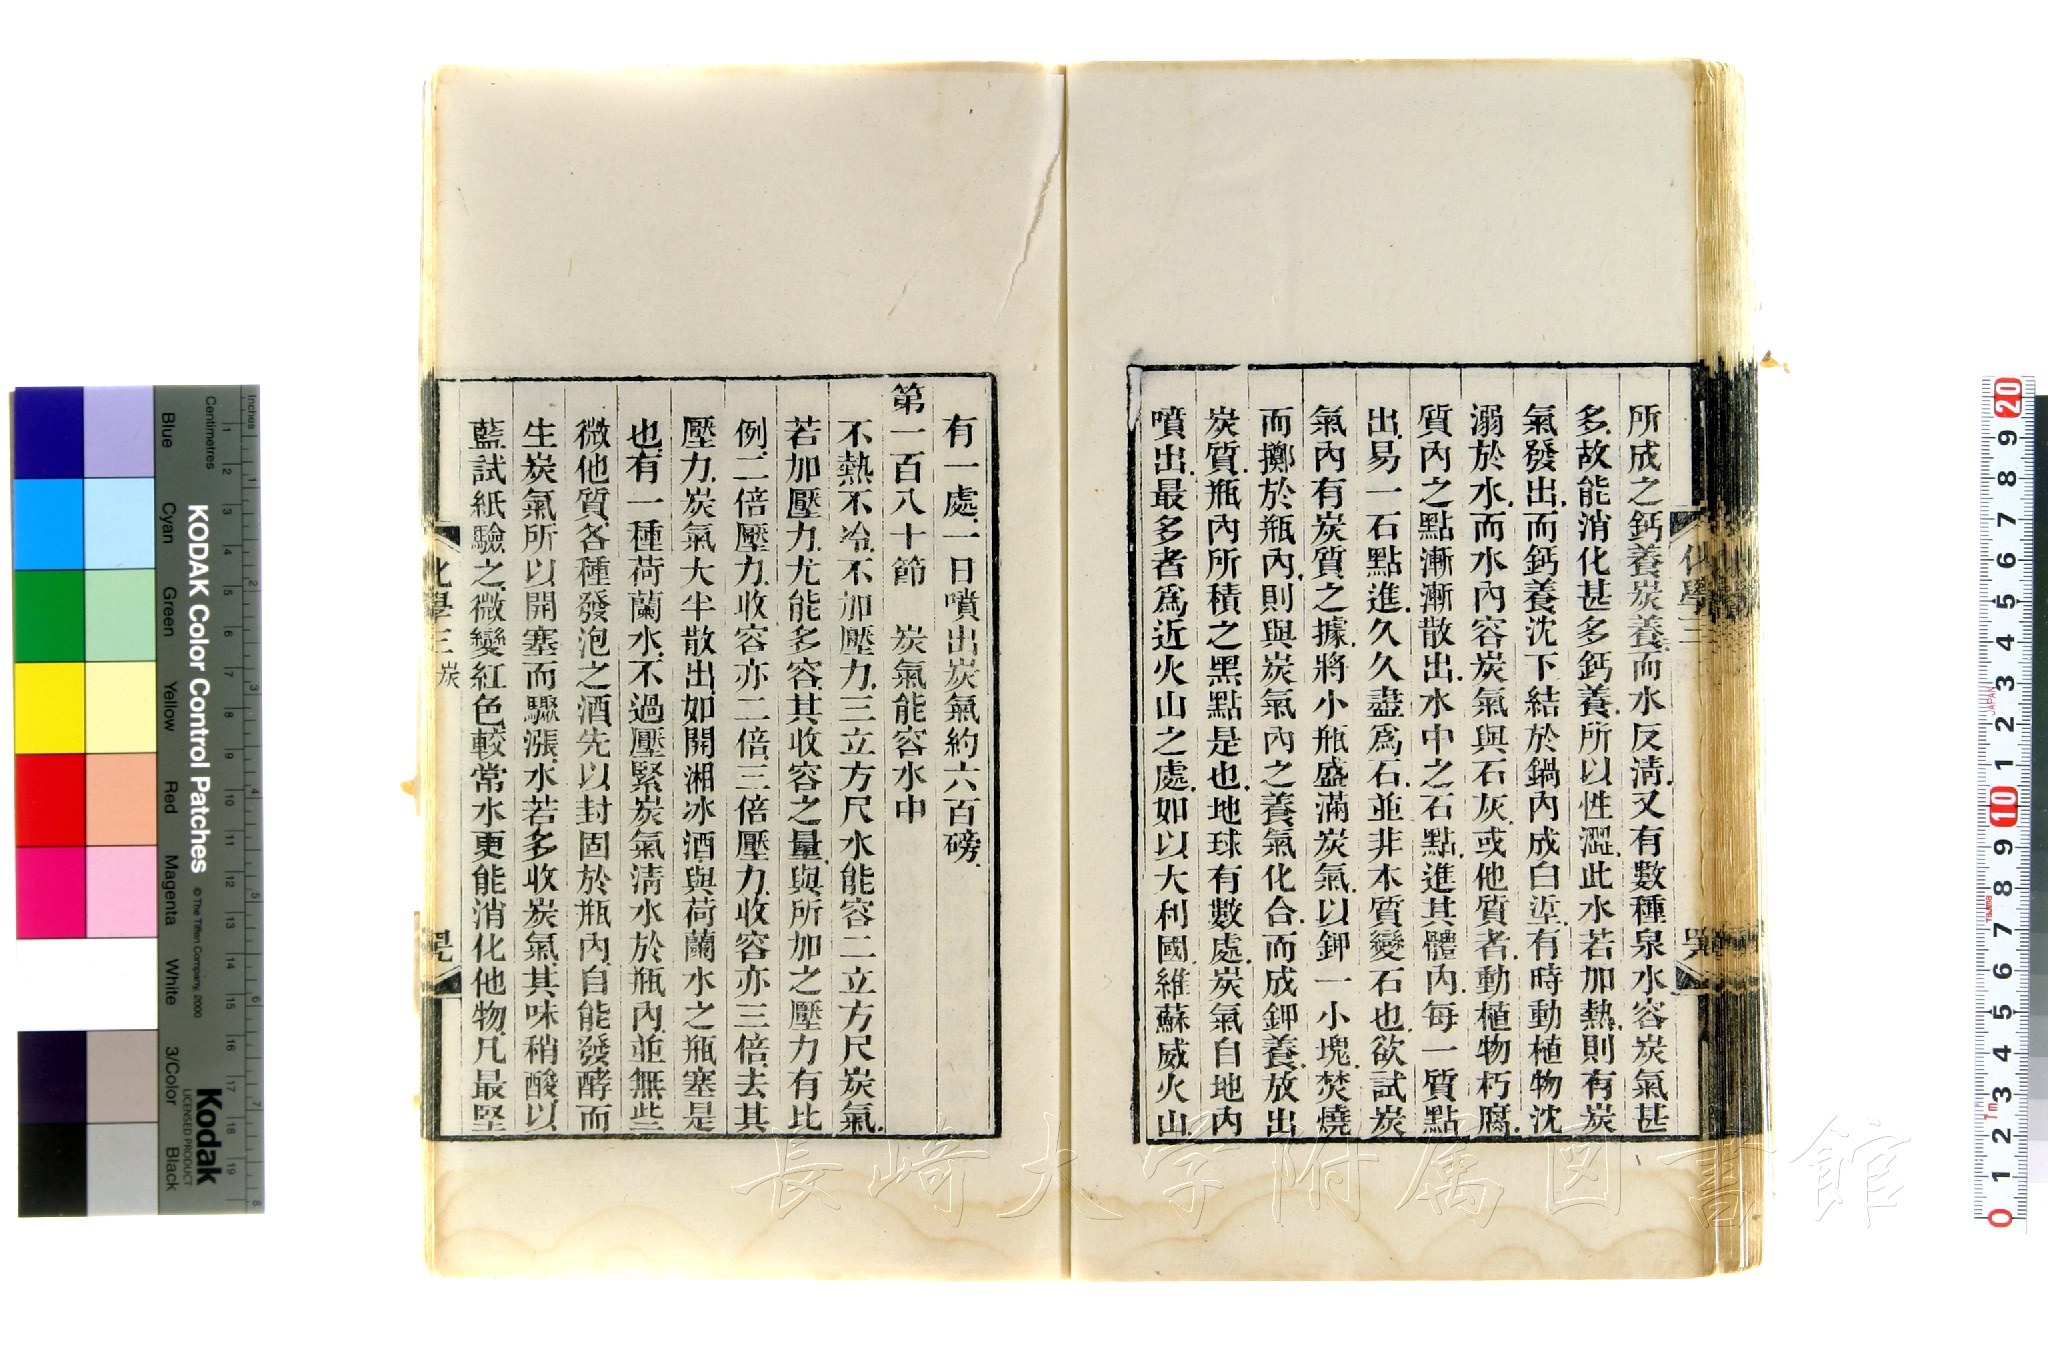 所成之鈣養炭養.而水反淸.又有數種泉水容炭氣甚
多.故能消化甚多鈣養.所以性澀.此水若加熱.則有炭
氣發出.而鈣養沈下結於鍋內成白坭.有時動植物沈
溺於水.而水內容炭氣與石灰.或他質者.動植物朽腐.
質內之點漸漸散出.水中之石點.進其體內.每一質點
出.易一石點進.久久盡爲石.並非木質變石也.欲試炭
氣內有炭質之據.將小瓶盛滿炭氣.以鉀一小塊.焚燒
而擲於瓶內.則與炭氣內之養氣化合.而成鉀養.放出
炭質.瓶內所積之黑點是也.地球有數處.炭氣自地內
噴出.最多者爲近火山之處.如以大利國.維蘇威火山.
化學三
有一處.一日噴出炭氣約六百磅.
第一百八十節 炭氣能容水中
不熱不冷.不加壓力.三立方尺水能容二立方尺炭氣.
若加壓力.尤能多容.其收容之量.與所加之壓力有比
例.二倍壓力.收容亦二倍.三倍壓力.收容亦三倍.去其
壓力.炭氣大半散出.如開湘冰酒與荷蘭水之瓶塞是
也.有一種荷蘭水.不過壓緊炭氣淸水於瓶內.並無些
微他質.各種發泡之酒.先以封固於瓶內.自能發酵而
生炭氣.所以開塞而驟漲.水若多收炭氣.其味稍酸.以
藍試紙驗之.微變紅色.較常水更能消化他物.凡最堅
化學三 炭
長崎大学附属図書館
KODAK Color Control Patches
© The Tiffen Company, 2000
Kodak
LICENSED PRODUCT
Inches
Centimetres
Blue
Cyan
Green
Yellow
Red
Magenta
White
3/Color
Black
1 2 3 4 5 6 7 8 9 10 11 12 13 14 15 16 17 18 19
1 2 3 4 5 6 7 8
20 9 8 7 6 5 4 3 2 1 10 9 8 7 6 5 4 3 2 1 0
JAPAN